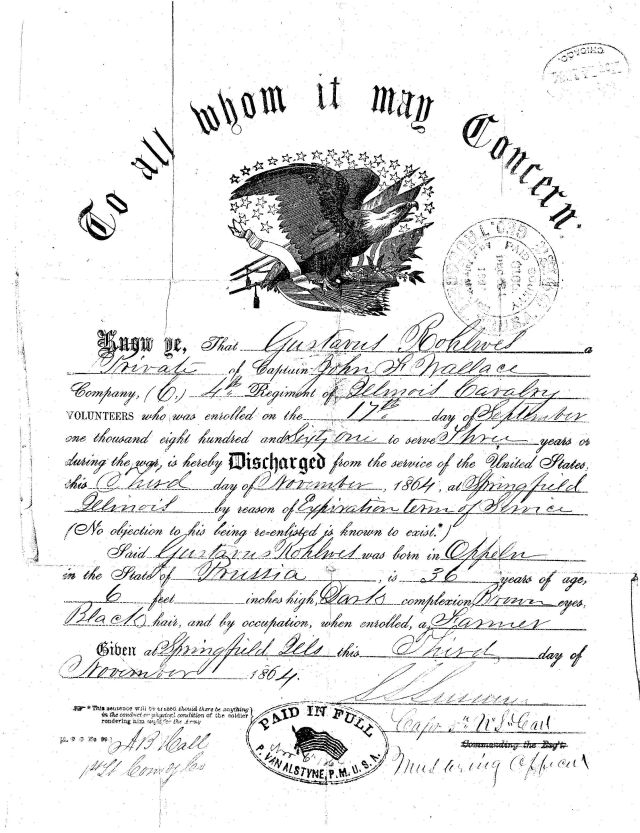 To all whom it may Concern.
CHICAGO.
PAID
Know ye, That Gustavus Rohlwes a
Private of Captain John F Wallace
Company, (C.) 4th Regiment of Illinois Cavalry
VOLUNTEERS who was enrolled on the 17th day of September
one thousand eight hundred and Sixty one to serve Three years or
during the war, is hereby Discharged from the service of the United States,
this Third day of November, 1864, at Springfield
Illinois by reason of Expiration term of Service
(No objection to his being re-enlisted is known to exist.*)
Said Gustavus Rohlwes was born in Oppeln
in the State of Prussia, is 36 years of age,
6 feet inches high, Dark complexion, Brown eyes,
Black hair, and by occupation, when enrolled, a Farmer
Given at Springfield Ills this Third day of
November 1864.
* This sentence will be erased should there be anything
in the conduct or physical condition of the soldier
rendering him unfit for the Army.
Capt
Commanding the Reg't.
Mustering Officer
[A. G. O. No. 99]
A B Hall
1st Lt Comdg Co
PAID IN FULL
P. VAN ALSTYNE, P.M. U.S.A.